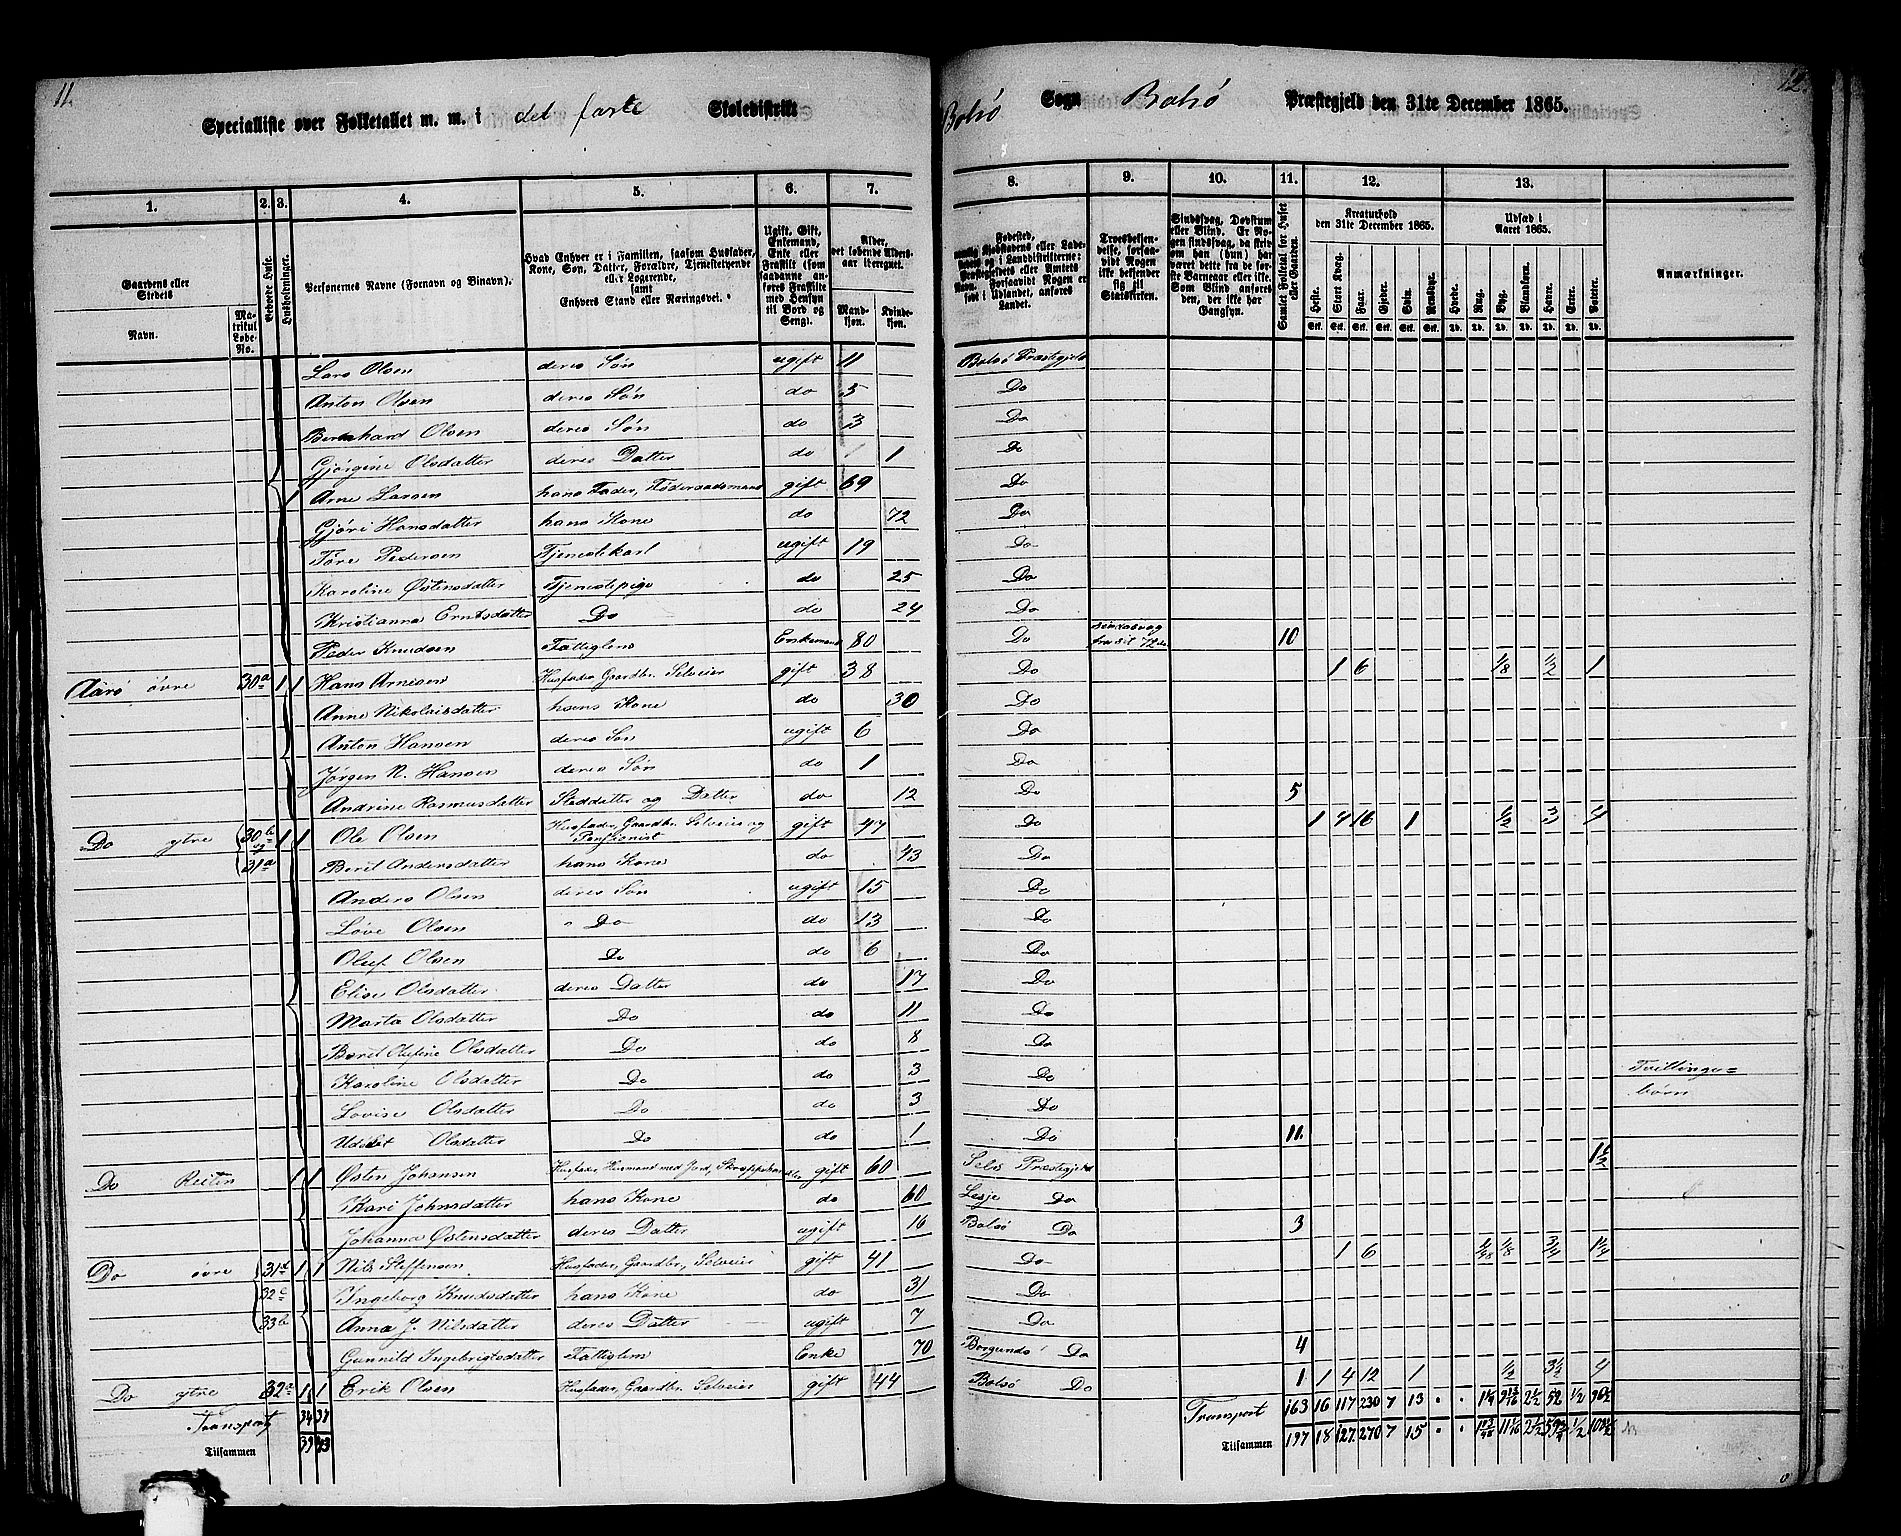 11.
Specialliste over Folketallet m. m. i det første Skoledistrikt
Bolsø Sogn Bolsø Præstegjeld den 31te December 1865.
12.
1. 2. 3. 4. 5. 6. 7. 8. 9. 10. 11. 12. 13.
Gaardens eller Stedets
Navn.
Matrikul Løbe-No.
Beboede Huse.
Husholdninger.
Personernes Navne (Fornavn og Binavn).
Hvad Enhver er i Familien, saasom Husfader, Kone, Søn, Datter, Forældre, Tjenestetyende eller Logerende, samt Enhvers Stand eller Næringsvei.
Ugift, Gift, Enkemand, Enke eller Fraskilt (som saadanne anføres Fraskilte med Hensyn til Bord og Seng).
Alder, det løbende Alders-aar iberegnet.
Mandkjøn. Kvindekjøn.
Troesbekjendelse, forsaavidt Nogen ikke bekjender sig til Statskirken.
Samlet Folketal for Huset eller Gaarden.
Kreaturhold den 31te December 1865.
Heste. Stort Kvæg. Faar. Gjeder. Svin. Rensdyr.
Udsæd i Aaret 1865.
Hvede. Rug. Byg. Blandkorn. Havre. Erter. Poteter.
Anmærkninger.
Lars Olsen deres Søn ugift 11 Bolsø Præstegjeld
Anton Olsen deres Søn do 5 Do
Bernhard Olsen deres Søn do 3 Do
Gjørgine Olsdatter deres Datter do 1 Do
1 Arne Larsen hans Fader, Føderaadsmand gift 69 Do
Gjøri Hansdatter hans Kone do 72 Do
Tore Pedersen Tjenestekarl ugift 19 Do
Karoline Østensdatter Tjenestepige do 25 Do
Kristianna Erntsdatter Do do 24 Do
Peder Knudsen Fattiglem Enkemand 80 Do 10
Aarø øvre 30a 1 1 Hans Arnesen Husfader, Gaardbr. Selveier gift 38 Do 1 6 1/8 1/2 1
Anne Nikolaisdatter hans Kone do 30 Do
Anton Hansen deres Søn ugift 6 Do
Jørgen N. Hansen deres Søn do 1 Do
Andrine Rasmusdatter Steddatter og Datter do 12 Do 5
Do ytre 30b og 31a 1 1 Ole Olsen Husfader, Gaardbr. Selveier og Pensionist gift 47 Do 1 4 16 1 1/2 3 4
Berit Andersdatter hans Kone do 43 Do
Anders Olsen deres Søn ugift 15 Do
Love Olsen Do do 13 Do
Oluf Olsen Do do 6 Do
Elise Olsdatter deres Datter do 17 Do
Marta Olsdatter Do do 11 Do
Berit Olufine Olsdatter Do do 8 Do
Karoline Olsdatter Do do 3 Do Tvillinge=
Lovise Olsdatter Do do 3 Do børn
Olsdatter Do do 1 Do 11.
Do Reiten 1 1 Østen Johansen Husfader, Husmand med Jord, gift 60 Præstegjeld 1 1/2
Kari Johnsdatter hans Kone do 60 Lesje Do
Johanna Østensdatter deres Datter ugift 16 Bolsø Do 3
Do øvre 31 1 1 Nils Steffensen Husfader, Gaardbr, Selveier gift 41 Do 1 6 1/8 3/4
32c Ingeborg Knudsdatter hans Kone do 31 Do
33b Anna J. Nilsdatter deres Datter ugift 7 Do
Gunnild Ingebrigtsdatter Fattiglem Enke 70 Borgunds Do 4
Do ytre 32a 1 1 Erik Olsen Husfader, Gaardbr. Selveier gift 44 Bolsø Do 1 1 4 12 1 1/2 3 1/2 4
Transport 34 37 Transport 163 16 117 230 7 13
Tilsammen 39 43 Tilsammen 197 18 127 270 7 15